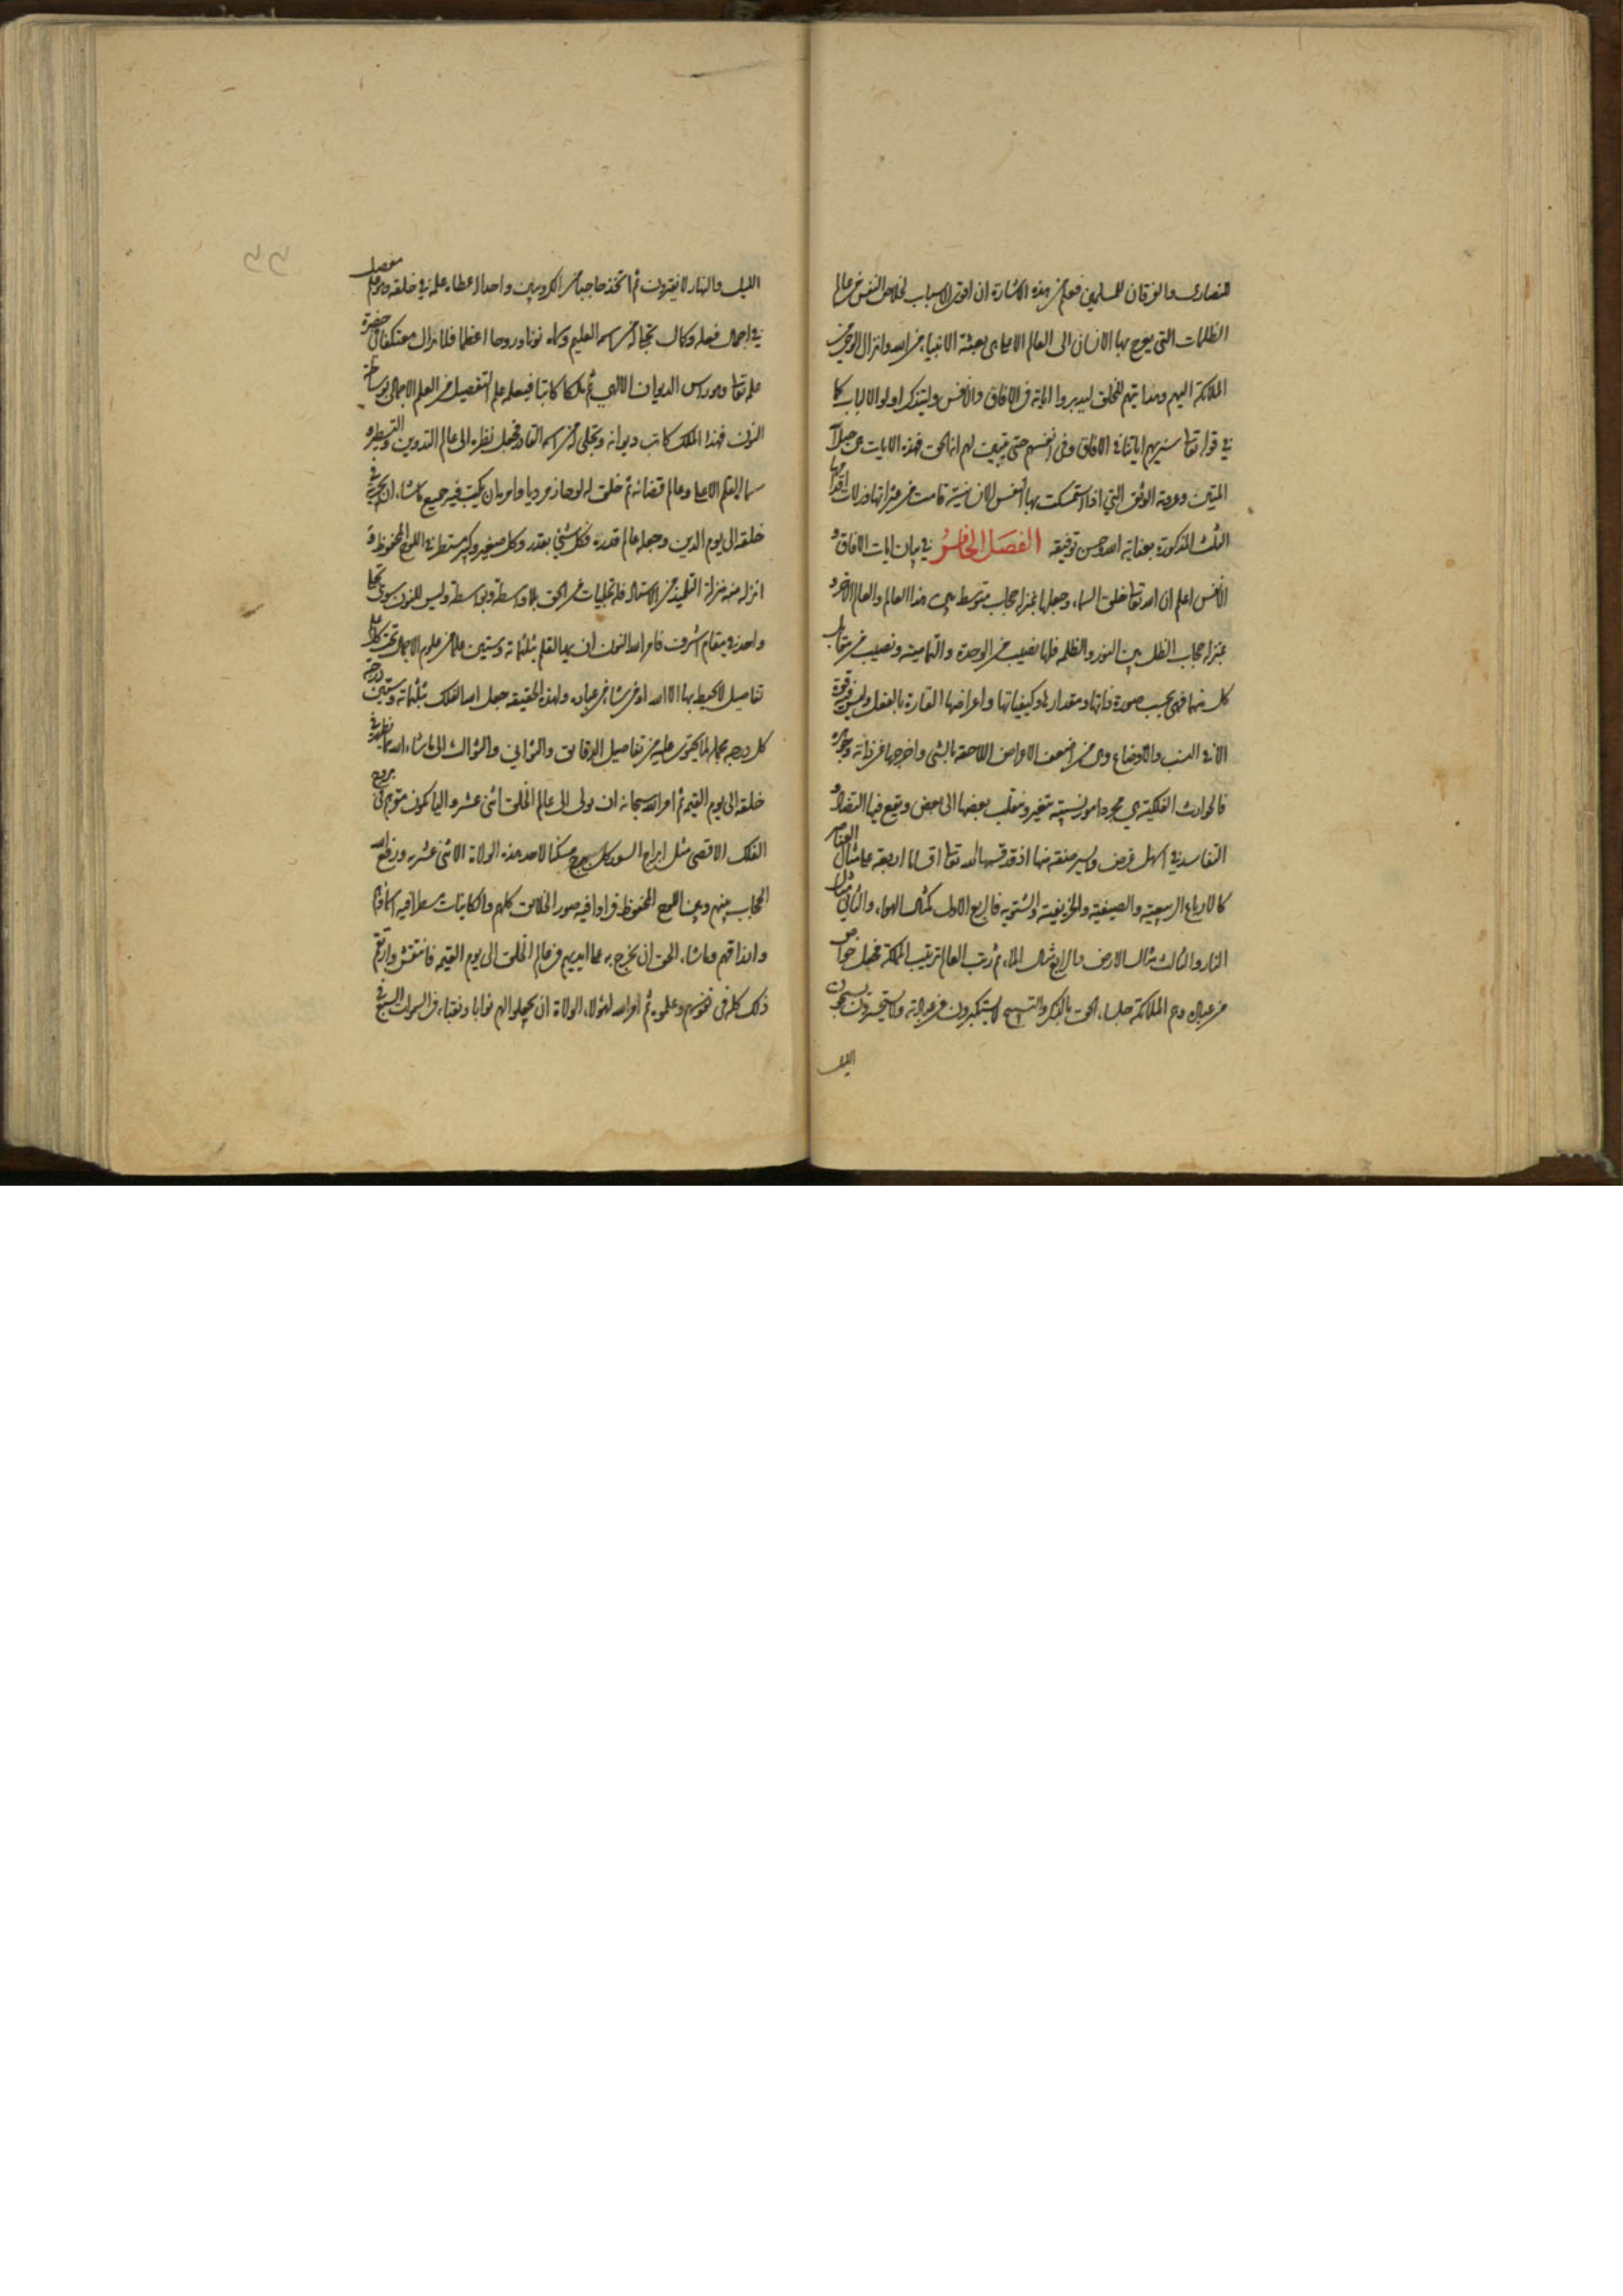 للنصارى والفرقان للمسلمين فعلم من هذه الاشارة ان اقوى الاسباب لخلاص النفس من عالم
الظلمات التى يعرج بها الانسان الى العالم الاعلى بعثة الانبياء من الله وانزال الوحى من
الملائكة اليهم وهدايتهم للخلق ليدبروا اياته فى الافاق والانفس وليتذكر اولوا الالباب كما
فى قوله تعا سنريهم اياتنا فى الافاق وفى انفسهم حتى يتبين لهم انه الحق فهذه الايات هى حبل الله
المتين وعروته الوثقى التى اذا استمسكت بها النفس الانسانية قامت من عثراتها وزلات اقدامها
الثلث المذكورة بعناية الله وحسن توفيقه الفصل الخامس فى بيان ايات الافاق و
الانفس اعلم ان الله تعا خلق السماء وجعلها بمنزلة حجاب متوسط بين هذا العالم والعالم الاخر و
بمنزلة حجاب الظل بين النور والظلمه فلها نصيب من الوحدة والتمامية ونصيب من مقابل
كل منهما فهى بحسب صورة ذاتها ومقدارها وكيفياتها واعراضها القارة بالفعل وليس فيه قوة
الا فى النسب والاوضاع وهى من اضعف الاعراض اللاحقة بالشئ واخرجها عن ذاته وجوهره
فالحوادث الفلكية هى مجرد امور نسبية متغير ومنقلب بعضها الى بعض ويقع فيها التضاد و
التفاسد فى اسهل عرض وايسر صفة منها اذ قد قسمها الله تعا اقساما اربعة على مثال العناصر
كالارباع الربيعية والصيفية والخريفية والشتوية فالربع الاول كمثال الهواء والثانى مثال
النار والثالث مثال الارض والرابع مثال الماء ثم رتب العالم ترتيب المملكة فجعل خواص
من عباده وهم الملائكة جلساء الحق بالذكر والتسبيح لا يستكبرون عن عبادته ولا يستحسرون يسبحون
الليل
الليل والنهار لا يفترون ثم اتخذ حاجبا من الكروبيين واحدا اعطاه علمه فى خلقه وهو علم مفصل
فى اجمال فعله وكان تجلياله من اسمه العليم وسماه نونا وروحا اعظما فلا يزال معتكفا فى حضرة
علمه تعا وهو راس الديوان الالهى ثم ملكا كاتبا فيعلمه علم التفصيل من العلم الاجمالى بوساطة
النون فهذا الملك كاتب ديوانه وتجلى له من اسمه القادر فجعل نظره الى عالم التدوين والتسطير و
سماه القلم الاعلى وعالم قضائه ثم خلق له لوحا زمرديا وامره ان يكتب فيه جميع ما شاء ان يجريه فى
خلقه الى يوم الدين وجعله عالم قدره فكل شئ بقدر وكل صغير وكبير مستطر فى اللوح المحفوظ قد
انزله منه منزلة التلميذ من الاستاذ فله تجليات من الحق بلا واسطة وبواسطة وليس للنون سوى تجل
واحد فى مقام اشرف فامر الله النون ان يمد القلم بثلثمائة وستين علما من علوم الاجمال تحت كل علم
تفاصيل لا يحيط بها الا الله او من شاء من عباده ولهذه الحقيقة جعل الله الفلك ثلثمائة وستين درجة
كل درجه مجملة لما يحتوى عليه من تفاصيل الدقايق والثوانى والثوالث الى ما شاء الله ما يظهره فى
خلقه الى يوم القيمه ثم امر الله سبحانه ان يولى الى عالم الخلق اثنى عشر واليا يكون مقرهم فى بروج
الفلك الاقصى مثل ابراج السور كل برج مسكنا لاحد هذه الولاة الاثنى عشر ورفع الله
الحجاب بينهم وبين اللوح المحفوظ فراوا فيه صور الخلايق كلهم والكاينات مسطرا فيه اسماؤهم
وارزاقهم وما شاء الحق ان يخرج به على ايديهم فى عالم الخلق الى يوم القيمه فانتقش وارتقم
ذلك كله فى نفوسهم وعلموه ثم امر الله لهؤلاء الولاة ان يجعلوا لهم نوابا ونقباء فى السموات السبع فى